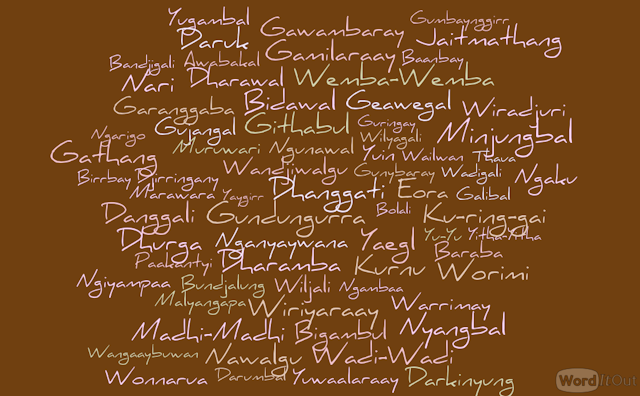 Yugambal Gawambaray Gumbaynggirr
Daruk Jaitmathang
Bandjigali Awabakal Gamilaraay Baanbay
Nari Dharawal Wemba-Wemba
Garanggaba Bidawal Geawegal Wiradjuri
Ngarigo Gujangal Githabul Guringay Minjungbal
Gathang Muruwari Ngunawal Wilyagali
Yuin Wailwan Thava
Birrbay Djirringany Wandjiwalgu Gunybaray Wadigali Ngaku
Marawara Yaygirr Dhanggati Eora Galibal
Danggali Gundungurra Bolali Ku-ring-gai
Dhurga Nganyaywana Yaegl Yu-Yu Yitha-Yitha
Baraba
Paakantyi Dharamba Kurnu Worimi
Ngiyampaa Bundjalung Wiljali Ngambaa
Malyangapa Wiriyaraay Warrimay
Madhi-Madhi Bigambul Nyangbal
Wangaaybuwan Nawalgu Wadi-Wadi
Wonnarua Darumbal Yuwaalaraay Darkinyung
WordItOut